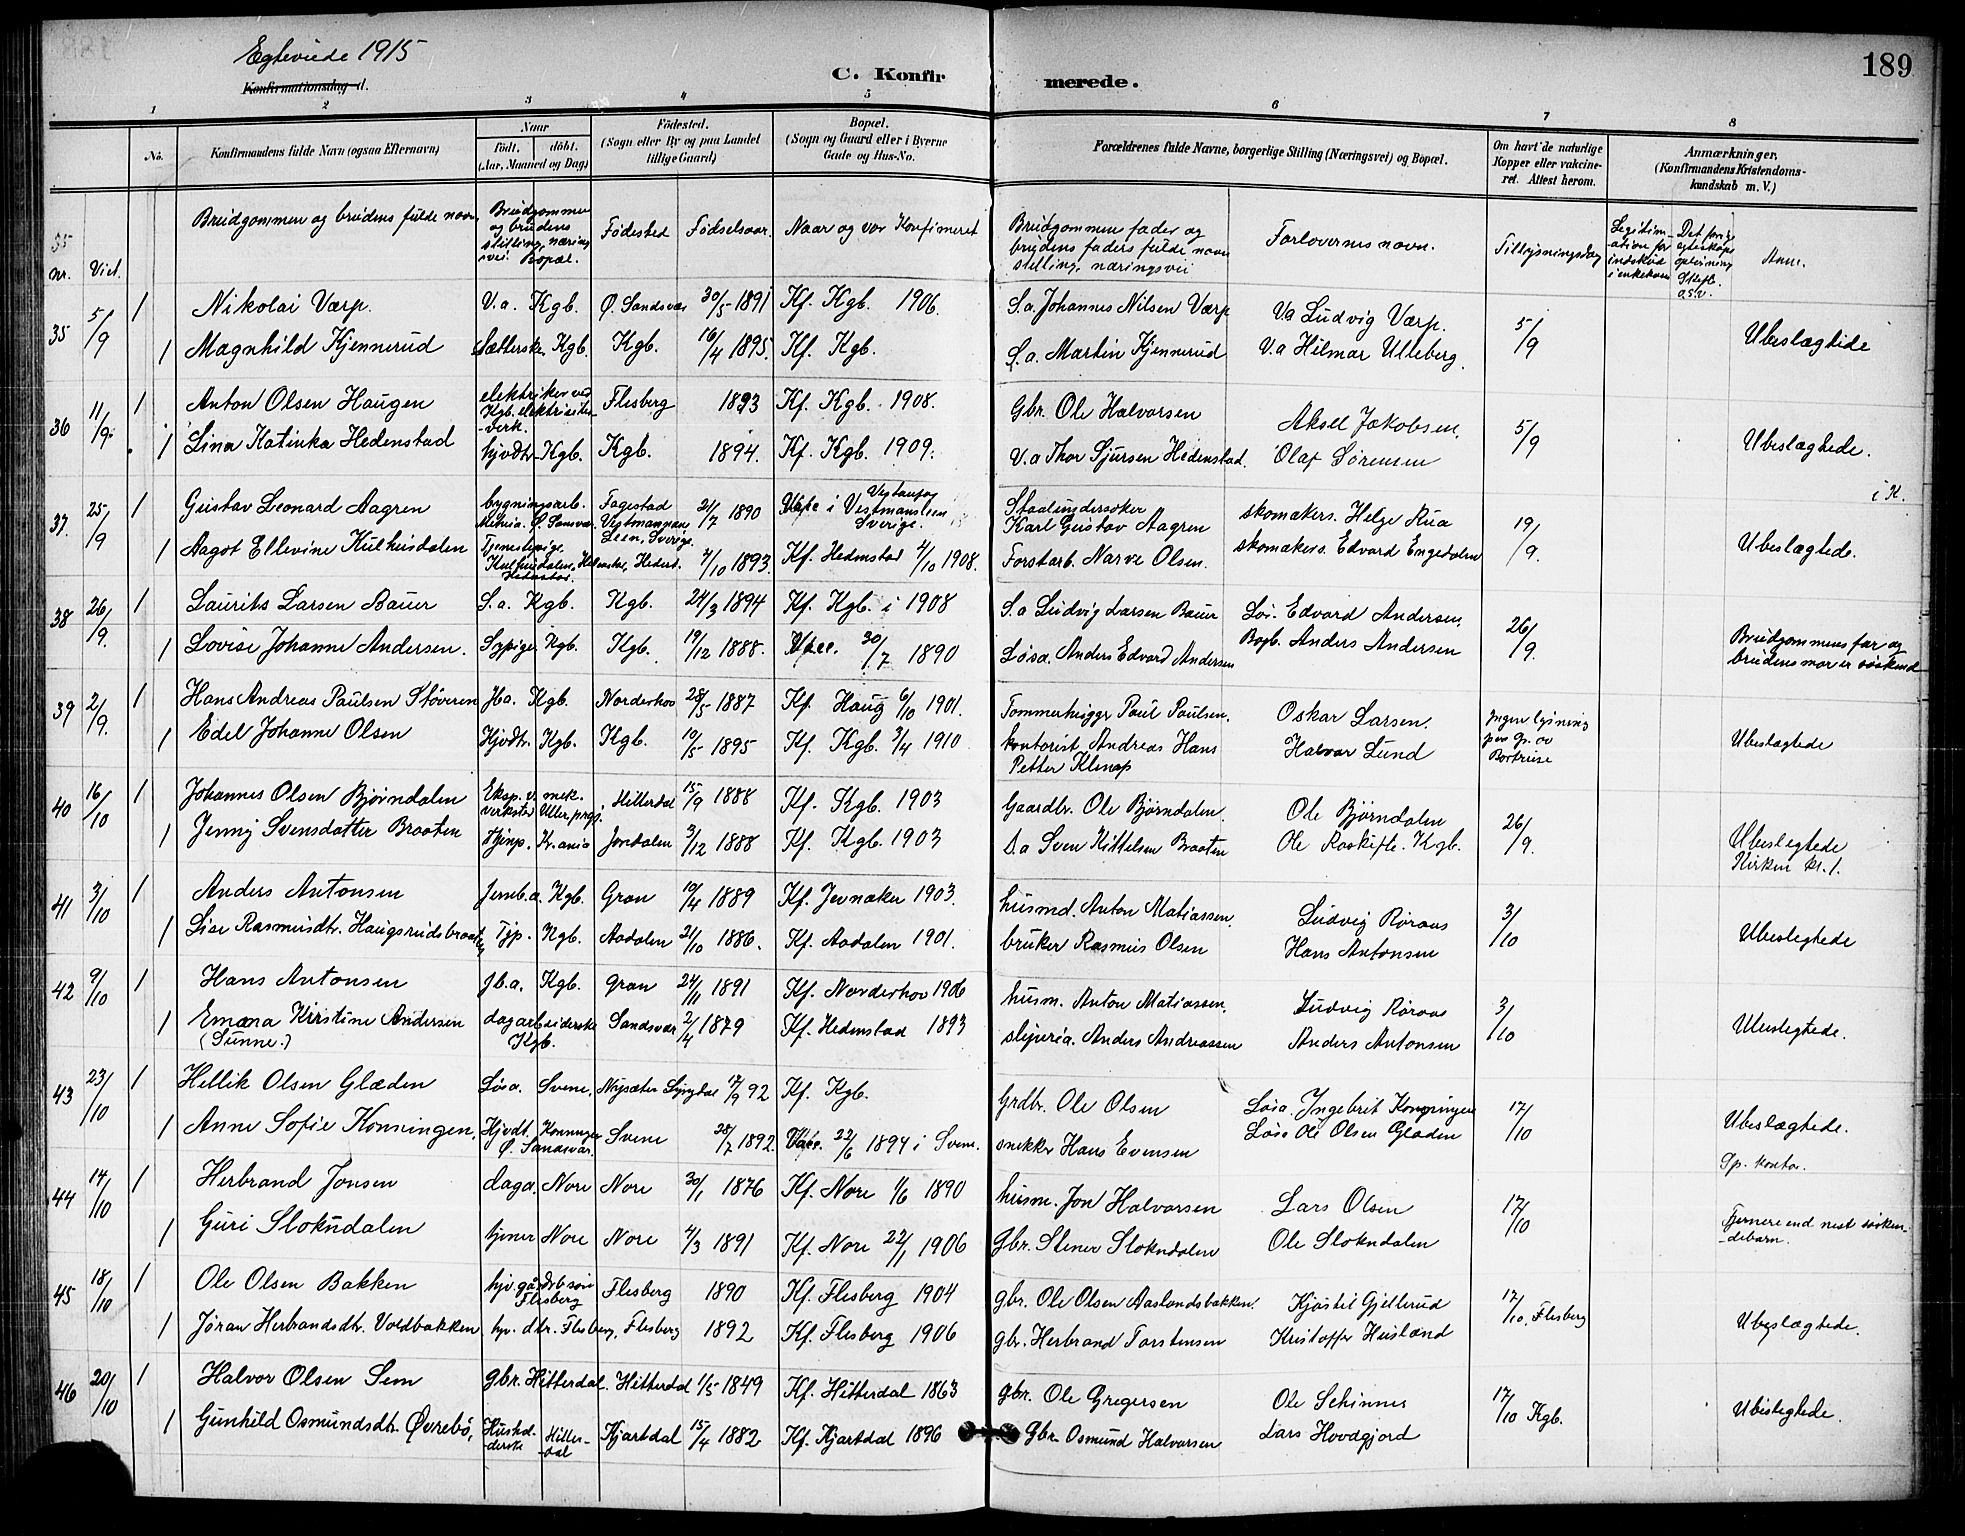 Egteviede 1915
Konfirmationsdag d.
C. Konfirmerede.
189
1 2 3 4 5 6 7 8
No.
Konfirmandens fulde Navn (ogsaa Efternavn)
Naar født. døbt. (Aar, Maaned og Dag)
Fødested. (Sogn eller By og paa Landet tillige Gaard)
Bopæl. (Sogn og Gaard eller i Byerne Gade og Hus-No.
Forældrenes fulde Navne, borgerlige Stilling (Næringsvei) og Bopæl.
Om havt de naturlige Kopper eller vakcineret. Attest herom.
Anmærkninger, (Konfirmandens Kristendomskundskab m. V.)
nr. Viet. Brudgommen og brudens fulde navn Brudgommen og brudens stilling, næringsvei Bopæl. Fødested Fødselsaar Naar og vor Konfirmeret Brudgommens fader og brudens faders fulde navn stilling, næringsvei Forlovernes navn. Tillysningsdag Legitimation for indskud i enkekasse Det forige egteskaps opløsning Skifte o.s.v. Anm.
35 5/9 1 Nikolai Værp. V.a. Kgb. Ø. Sandsvær 30/5 1891 Kf. Kgb. 1906. S.a. Johannes Nilsen Værp V.a Ludvig Værp. 5/9 Ubeslægtede
1 Magnhild Kjennerud Sætterske Kgb. Kgb. 16/4 1895. Kf. Kgb. S.a. Martin Kjennerud V.a Hilmar Ulleberg.
36 11/9. 1 Anton Olsen Haugen elektriker ved Kgb. elektrisitetsverk. Flesberg 1893 Kf. Kgb. 1908. Gbr. Ole Halvorsen Aksel Jakobsen. 5/9 Ubeslægtede.
1 Lina Katinka Hedenstad hjvdtr Kgb. Kgb. 1894. Kf. Kgb. 1909. V.a Thor Sjursen Hedenstad. Olaf Sørensen
37. 25/9 1 Gustav Leonard Aagren bygningsarb. Ø. Sansvær. Fagestad Vestmannan Leen, Sverige. 21/7 1890 Vace i Vestmansleen Sverige. Staalundersøker Karl Gustav Aagren skomakers. Helge Rua 19/9. i K. Ubeslægtede.
1 Aagot Ellevine Kulhusdalen Tjenestepige. Kulhusdalen, Hedenstad Hedenst. 7/10 1893. Kf. Hedenstad 4/10 1908. Forstarb. Narve Olsen. skomakers. Edvard Engedalen
38 26/9. 1 Laurits Larsen Bauer S.a. Kgb. Kgb. 24/3 1894 Kf. Kgb. i 1908 S.a Ludvig Larsen Bauer Løs. Edvard Andersen. 26/9. Brudgommens far og brudens mor er søskend
1 Lovise Johanne Andersen. Sypige. Kgb. Kgb. 19/12 1888. Vacc. 30/7 1890 Løsa. Anders Edvard Andersen Bogb. Anders Andersen
39 2/9. 1 Hans Andreas Paulsen Støveren Ha. Kgb. Norderhov 28/5 1887 Kf. Haug 6/10 1901. Tommerhugger Paul Paulsen. Oskar Larsen. Ingen lysning paa gr. av Bortreise Ubeslægtede
1 Edel Johanne Olsen Hjvdtr. Kgb. Kgb. 10/5 1895 Kf. Kgb. 3/4 1910. kontorist Andreas Hans Petter Klemp Halvar Lund
40 16/10 1 Johannes Olsen Bjørndalen Eksp. v. mek. verksted Hitterdal 15/9 1888 Kf. Kgb. 1903 Gaardbr. Ole Bjørndalen. Ole Bjørndalen 26/9. Ubeslegtede Kirken kl. 1.
1 Jenny Svensdatter Braaten Hjemp. Kr.ania Jondalen 3/12 1888 Kf. Kgb. 1903 D.a Sven Kittelsen Braaten Ole Raakifte. Kgb.
41 3/10 1 Anders Antonsen Jernb.a. Kgb. Gran 10/4 1889 Kf. Jevnaker 1903. husmd. Anton Matiassen. Ludvig Røraas 3/10 Ubeslegtede
1 Lise Rasmusdtr. Haugsrudsbraaten Tjp. Kgb. Aadalen 21/10 1886. Kf. Aadalen 1901. bruker Rasmus Olsen Hans Antonsen
42 9/10 1 Hans Antonsen Jb.a. Kgb. Gran 24/11 1891 Kf. Norderhov 1906 husm. Anton Matiassen. Ludvig Røraas 3/10 Ubeslegtede.
1 Emma Kristine Andersen (Sunne.) dagarbeiderske Kgb. Sandsvær 2/4 1879 Kf. Hedenstad 1893 sliperia. Anders Andreassen Anders Antonsen
43 23/10 1 Hellik Olsen Glæden Løsa. Svene. Nysæter Lyngdal 17/9 92 Kf. Kgb. Grdbr. Ole Olsen Løsa. Ingebrit Konningen 17/10 Ubeslægtede.
1 Anne Sofie Konningen. Hjvdt. Konningen Ø. Sandsvær. Svene 28/7 1892. Vacc. 22/6 1894 i Svene. snekker Hans Evensen Løsa Ole Olsen Glæden
Sp. kontor.
44 14/10 1 Herbrand Jonsen daga. Nore Nore 30/1 1876 Kf. Nore 1/6 1890 husm. Jon Halvorsen Lars Olsen 17/10 Fjernere end nest søskendebarn.
1 Guri Slokndalen tjener Nore Nore 4/3 1891 Kf. Nore 22/1 1906 Gbr. Stener Slokndalen Ole Slokndalen
45 18/10 1 Ole Olsen Bakken hjv. gårdbsøn Flesberg Flesberg 1890 Kf. Flesberg 1904 gbr. Ole Olsen Aaslandsbakken. Kjøstil Gjellerud 17/10. Flesberg Ubeslægtede.
1 Jøran Herbrandsdtr. Voldbakken hjv. dtr. Flesberg, Flesberg 1892 Kf. Flesberg 1906 gbr. Herbrand Torstensen Kristoffer Husland
46 20/10 1 Halvor Olsen Sem gbr. Hitterdal. Hitterdal 1/5 1849 Kf. Hitterdal 1863 gbr. Ole Gregersen Ole Schinnes 17/10 Kgb. Ubeslegtede.
1 Gunhild Osmundsdtr. Øvrebø, Husholderske Hitterdal Hjartdal 15/4 1882 Kf. Hjartdal 1896 Gbr. Osmund Halvorsen Lars Hovdgjord